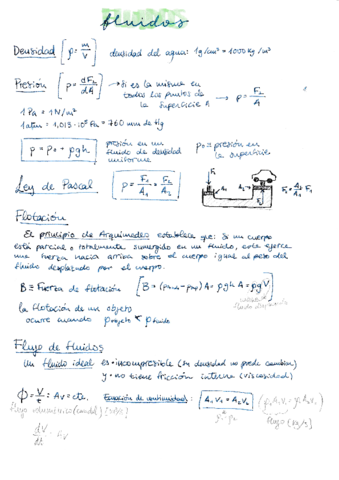 fluidos
Densidad [ρ = m/V] densidad del agua: 1g/cm³ = 1000 Kg/m³
Presión [p = dF⊥/dA] → Si es la misma en todos los puntos de la superficie A → p = F⊥/A
1 Pa = 1 N/m²
1 atm = 1,013·10⁵ Pa = 760 mm de Hg
p = p₀ + ρgh presión en un fluido de densidad uniforme p₀ = presión en la superficie
Ley de Pascal p = F₁/A₁ = F₂/A₂
Flotación
El principio de Arquímedes establece que: Si un cuerpo
está parcial o totalmente sumergido en un fluido, este ejerce
una fuerza hacia arriba sobre el cuerpo igual al peso del
fluido desplazado por el cuerpo.
B ≡ Fuerza de flotación
la flotación de un objeto
ocurre cuando ρobjeto < ρfluido
Flujo de fluidos
Un fluido ideal es · incompresible (su densidad no puede cambiar)
y · no tiene fricción interna (viscosidad)
Φ = V/t = Av = cte. Ecuación de continuidad: A₁V₁ = A₂V₂
dV/dt = Av